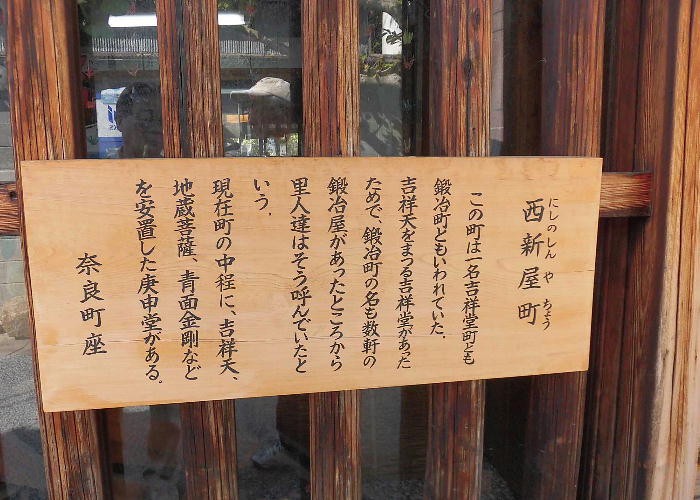 にしのしん や ちょう
西新屋町
この町は一名吉祥堂町とも
鍛冶町ともいわれていた。
吉祥天をまつる吉祥堂があった
ためで、鍛冶町の名も数軒の
鍛冶屋があったところから
里人達はそう呼んでいたと
いう。
現在町の中程に、吉祥天、
地蔵菩薩、青面金剛など
を安置した庚申堂がある。
奈良町座